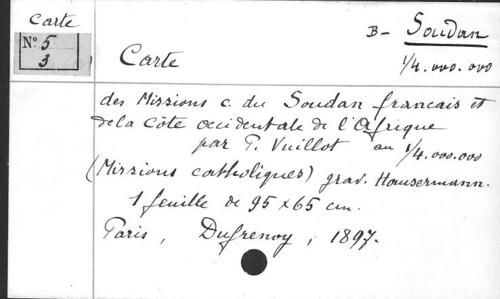 Carte
No. 5
3
B- Soudan
1/4.000.000
Carte
des Missions c. du Soudan francais et
de la Côte occidentale de l'Afrique
par P. Vuillot au 1/4.000.000
(Missions catholiques) grav. Hausermann.
1 feuille de 95 x 65 cm.
Paris, Dufrenoy, 1897.